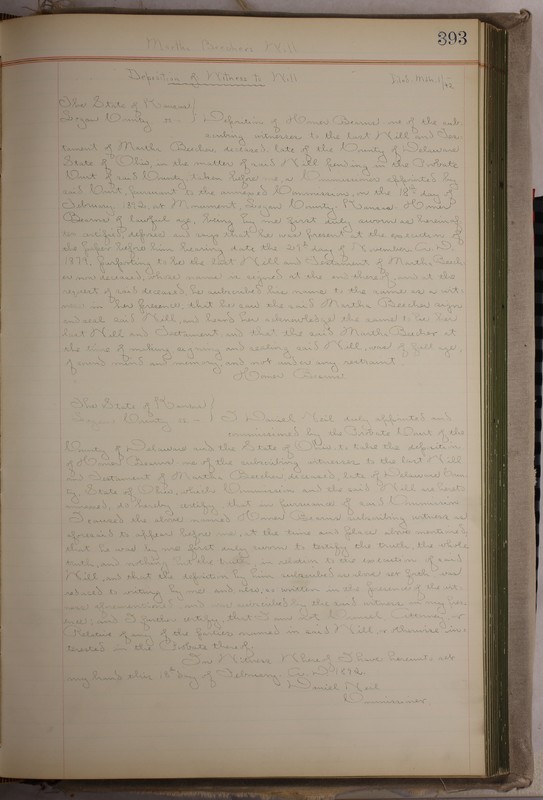 393
Martha Beechers Will
Deposition of Witness to Will
The State of Kansas
Logan County ss Deposition of Homer Bearss one of the sub
scribing witnesses to the last Will and Tes
tament of Martha Beecher deceased, late of the County of Delaware
State of Ohio, in the matter of said Will pending in the Probate
Court of said County, taken before me, a Commissioner appointed by
said Court pursuant to the annexed Commission, on the 13th day of
February 1892, at Monument, Logan County, Kansas. Homer
of lawful age, being by me first duly sworn as herein
certified, deposes and says that he was present at the execution of
the paper before him bearing date the day of November A.D.
purporting to be the last Will and Testament of Martha Beech
er now deceased, whose name is signed at the end thereof, and at the
request of said deceased he subscribed his name to the same as a wit-
ness in her presence; that he saw the said Martha Beecher sign
and seal said Will, and heard her acknowledge the same to be her
last Will and Testament and that the said Martha Beecher at
the time of making, signing and sealing said Will, was of full age,
of sound mind and memory and not under any restraint
Homer
The State of Kansas
County ss I Daniel Nail duly appointed and
commissioned by the Probate Court of the
County of Delaware and the State of Ohio to take the deposition
of Homer one of the subscribing witnesses to the last Will
and Testament of Martha Beecher deceased, late of Delaware Coun
ty, State of Ohio, which Commission and the said Will are hereto
annexed, do hereby certify, that in pursuance of said Commission
I caused the above named Homer subscribing witness as
aforesaid to appear before me, at the time and place above mentioned
that he was by me first duly sworn to testify the truth, the whole
truth, and nothing but the truth, in relation to the execution of said
Will, and that the deposition by him subscribed as above set forth was
reduced to writing by me and also, so written in the presence of the wit-
ness and was subscribed by the said witness in my pres
ence; and I further certify, that I am not Counsel, Attorney, or
Relative of any of the parties named in said Will, or otherwise in-
terested in the Probate thereof.
In Witness Whereof I have hereunto set
my hand this 13th day of February, A.D. 1892.
Daniel Nail
Commissioner